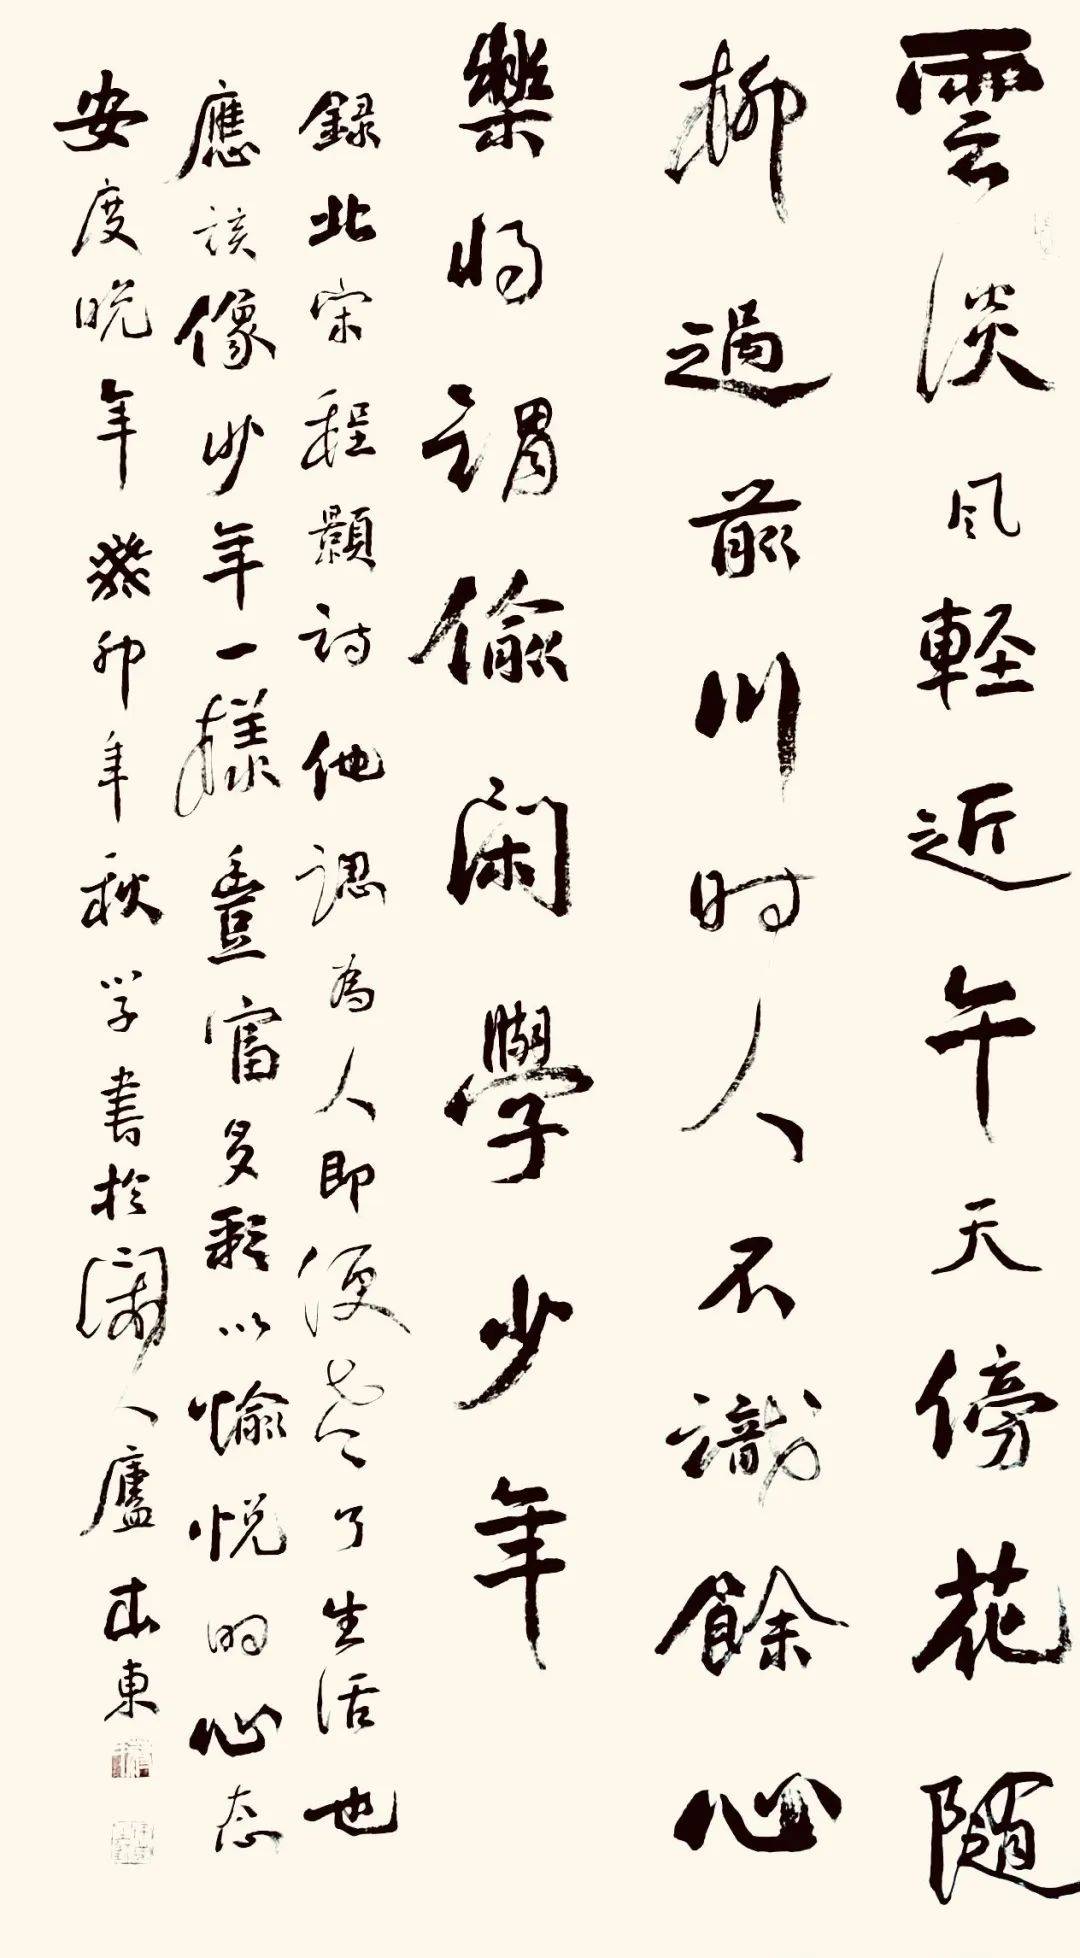 雲淡風輕近午天傍花随
柳過前川时人不識餘心
樂将謂偷闲學少年
録北宋程顥詩他認為人即便老了生活也
應該像少年一樣豐富多彩以愉悦的心态
安度晚年癸卯年秋学書於闲人廬東